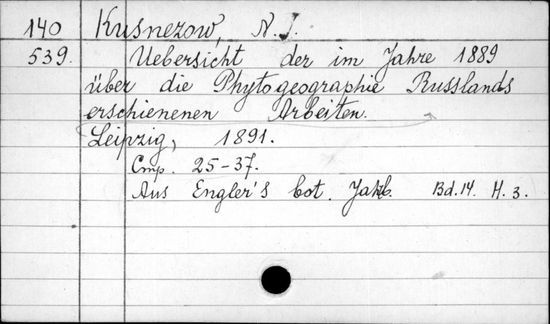 140 Kusnezow, N. J.
539. Uebersicht der im Jahre 1889
über die Phytogeographie Russlands
erschienenen Arbeiten.
Leipzig, 1891.
Стр. 25-37.
Aus Engler's bot. Jahrb. Bd. 14. H. 3.